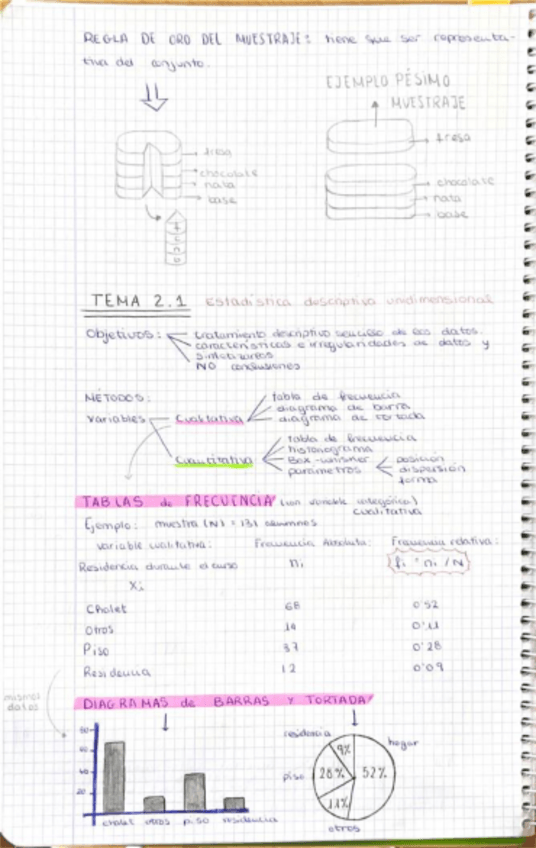 REGLA DE ORO DEL MUESTRAJE: tiene que ser representa-
tiva del conjunto.
EJEMPLO PÉSIMO
MUESTRAJE
fresa
chocolate
nata
base
fresa
chocolate
nata
base
TEMA 2.1 Estadística descriptiva unidimensional
Objetivos: tratamiento descriptivo sencillo de los datos.
características e irregularidades de datos y
sintetizarlos
NO conclusiones
MÉTODOS:
variables
Cualitativa
tabla de frecuencia
diagrama de barra
diagrama de tortada
Cuantitativa
tabla de frecuencia
histograma
Box-whisker
parámetros
posición
dispersión
forma
TABLAS de FRECUENCIA (con variable categórica)
cualitativa
Ejemplo: muestra (N) = 131 alumnos
variable cualitativa: Frecuencia Absoluta: Frecuencia relativa:
Residencia durante el curso ni fi = ni / N
Xi
Chalet 68 0'52
Otros 14 0'11
Piso 37 0'28
Residencia 12 0'09
mismos
datos
DIAGRAMAS de BARRAS y TORTADA
80
60
40
20
chalet otros piso residencia
residencia
9%
hogar
piso 28% 52%
11%
otros